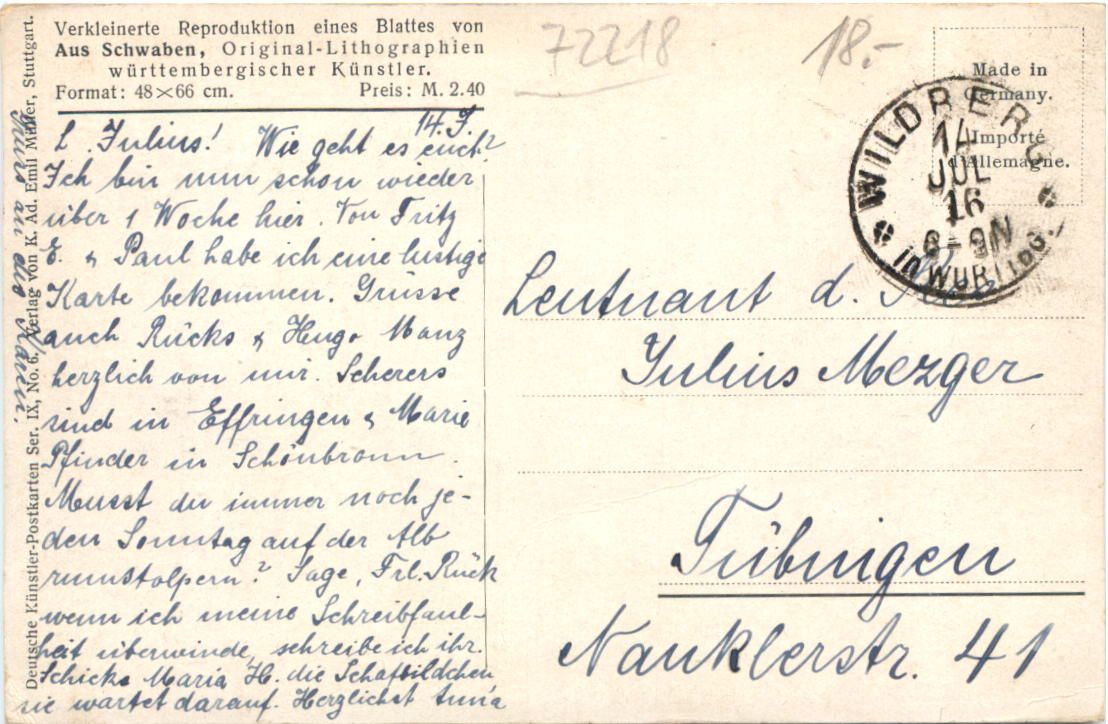 Verkleinerte Reproduktion eines Blattes von
Aus Schwaben, Original-Lithographien
württembergischer Künstler.
Format: 48×66 cm. Preis: M. 2.40
14. J.
L. Julius! Wie geht es euch?
Ich bin nun schon wieder
über 1 Woche hier. Von Fritz
E. & Paul habe ich eine lustige
Karte bekommen. Grüsse
auch Rücks & Hugo Manz
herzlich von mir. Scherers
sind in Effringen & Marie
Pfinder in Schönbronn.
Musst du immer noch je-
den Sonntag auf der Alb
rumstolpern? Sage, Frl. Rück
wenn ich meine Schreibfaul-
heit überwinde, schreibe ich ihr.
Schicke Maria H. die Schafbildchen,
sie wartet darauf. Herzlichst Anna
Deutsche Künstler-Postkarten Ser. IX, No. 6. Verlag von K. Ad. Emil Müller, Stuttgart.
72218
18.-
Made in
Germany.
Importé
d'Allemagne.
WILDBERG
14
JUL
16
6-9N
in WÜRTTBG.
Leutnant d.
Julius Mezger
Tübingen
Nauklerstr. 41